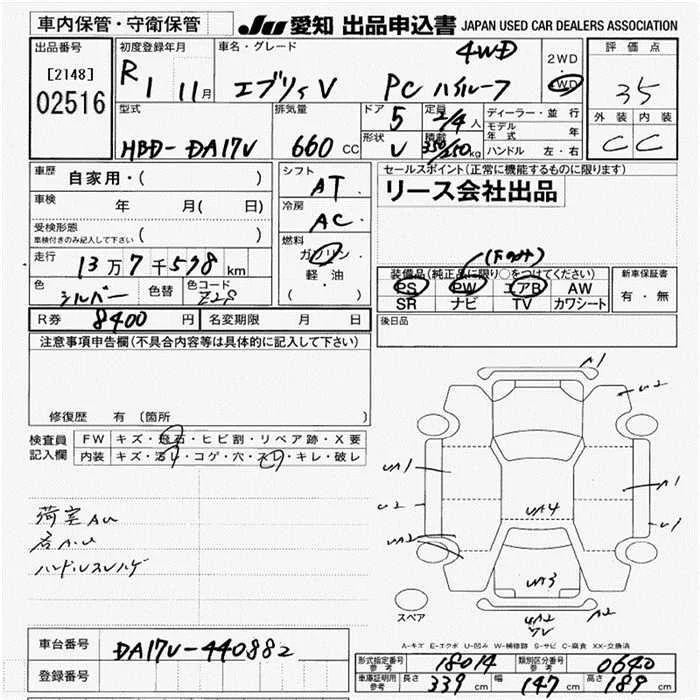 車内保管・守衛保管
JU 愛知 出品申込書 JAPAN USED CAR DEALERS ASSOCIATION
出品番号
[2148]
02516
初度登録年月
R 1 11月
車名・グレード
エブリィV PC ハイルーフ 4WD
2WD
4WD
評価点
35
外装 内装
C C
型式
HBD-DA17V
排気量
660 CC
ドア
5
形状
V
定員
2/4人
積載
350/250kg
ディーラー・並行
モデル年式 年
ハンドル 左・右
車歴
自家用・( )
車検 年 月( 日)
受検形態
車検付きのみ記入して下さい ( )
走行
13万7千598km
色
シルバー
色替
色コード
Z2S
シフト
AT
冷房
AC
燃料
ガソリン
軽・油
( ・ )
セールスポイント(正常に機能するものに限ります)
リース会社出品
装備品(純正品に限り○をつけてください)
PS PW エアB AW
SR ナビ TV カワシート
新車保証書
有・無
後日品
R券 8400円
名変期限 月 日
注意事項申告欄(不具合内容等は具体的に記入して下さい)
修復歴 有(箇所 )
検査員記入欄
FW キズ・飛石・ヒビ割・リペア跡・X要
内装 キズ・汚レ・コゲ・穴・スレ・キレ・破レ
荷室AU
ハンドルスレハゲ
A1
U2
UA1
U2
UA2
UA4
A1
U1
UA3
A2
スペア
A-キズ E-エクボ U-凹み W-補修跡 S-サビ C-腐食 XX-交換済
車台番号
DA17V-440882
登録番号
形式指定番号 参考 18014
類別区分番号 参考 0640
車庫証明用 参考 長さ 339cm 幅 147cm 高さ 189cm